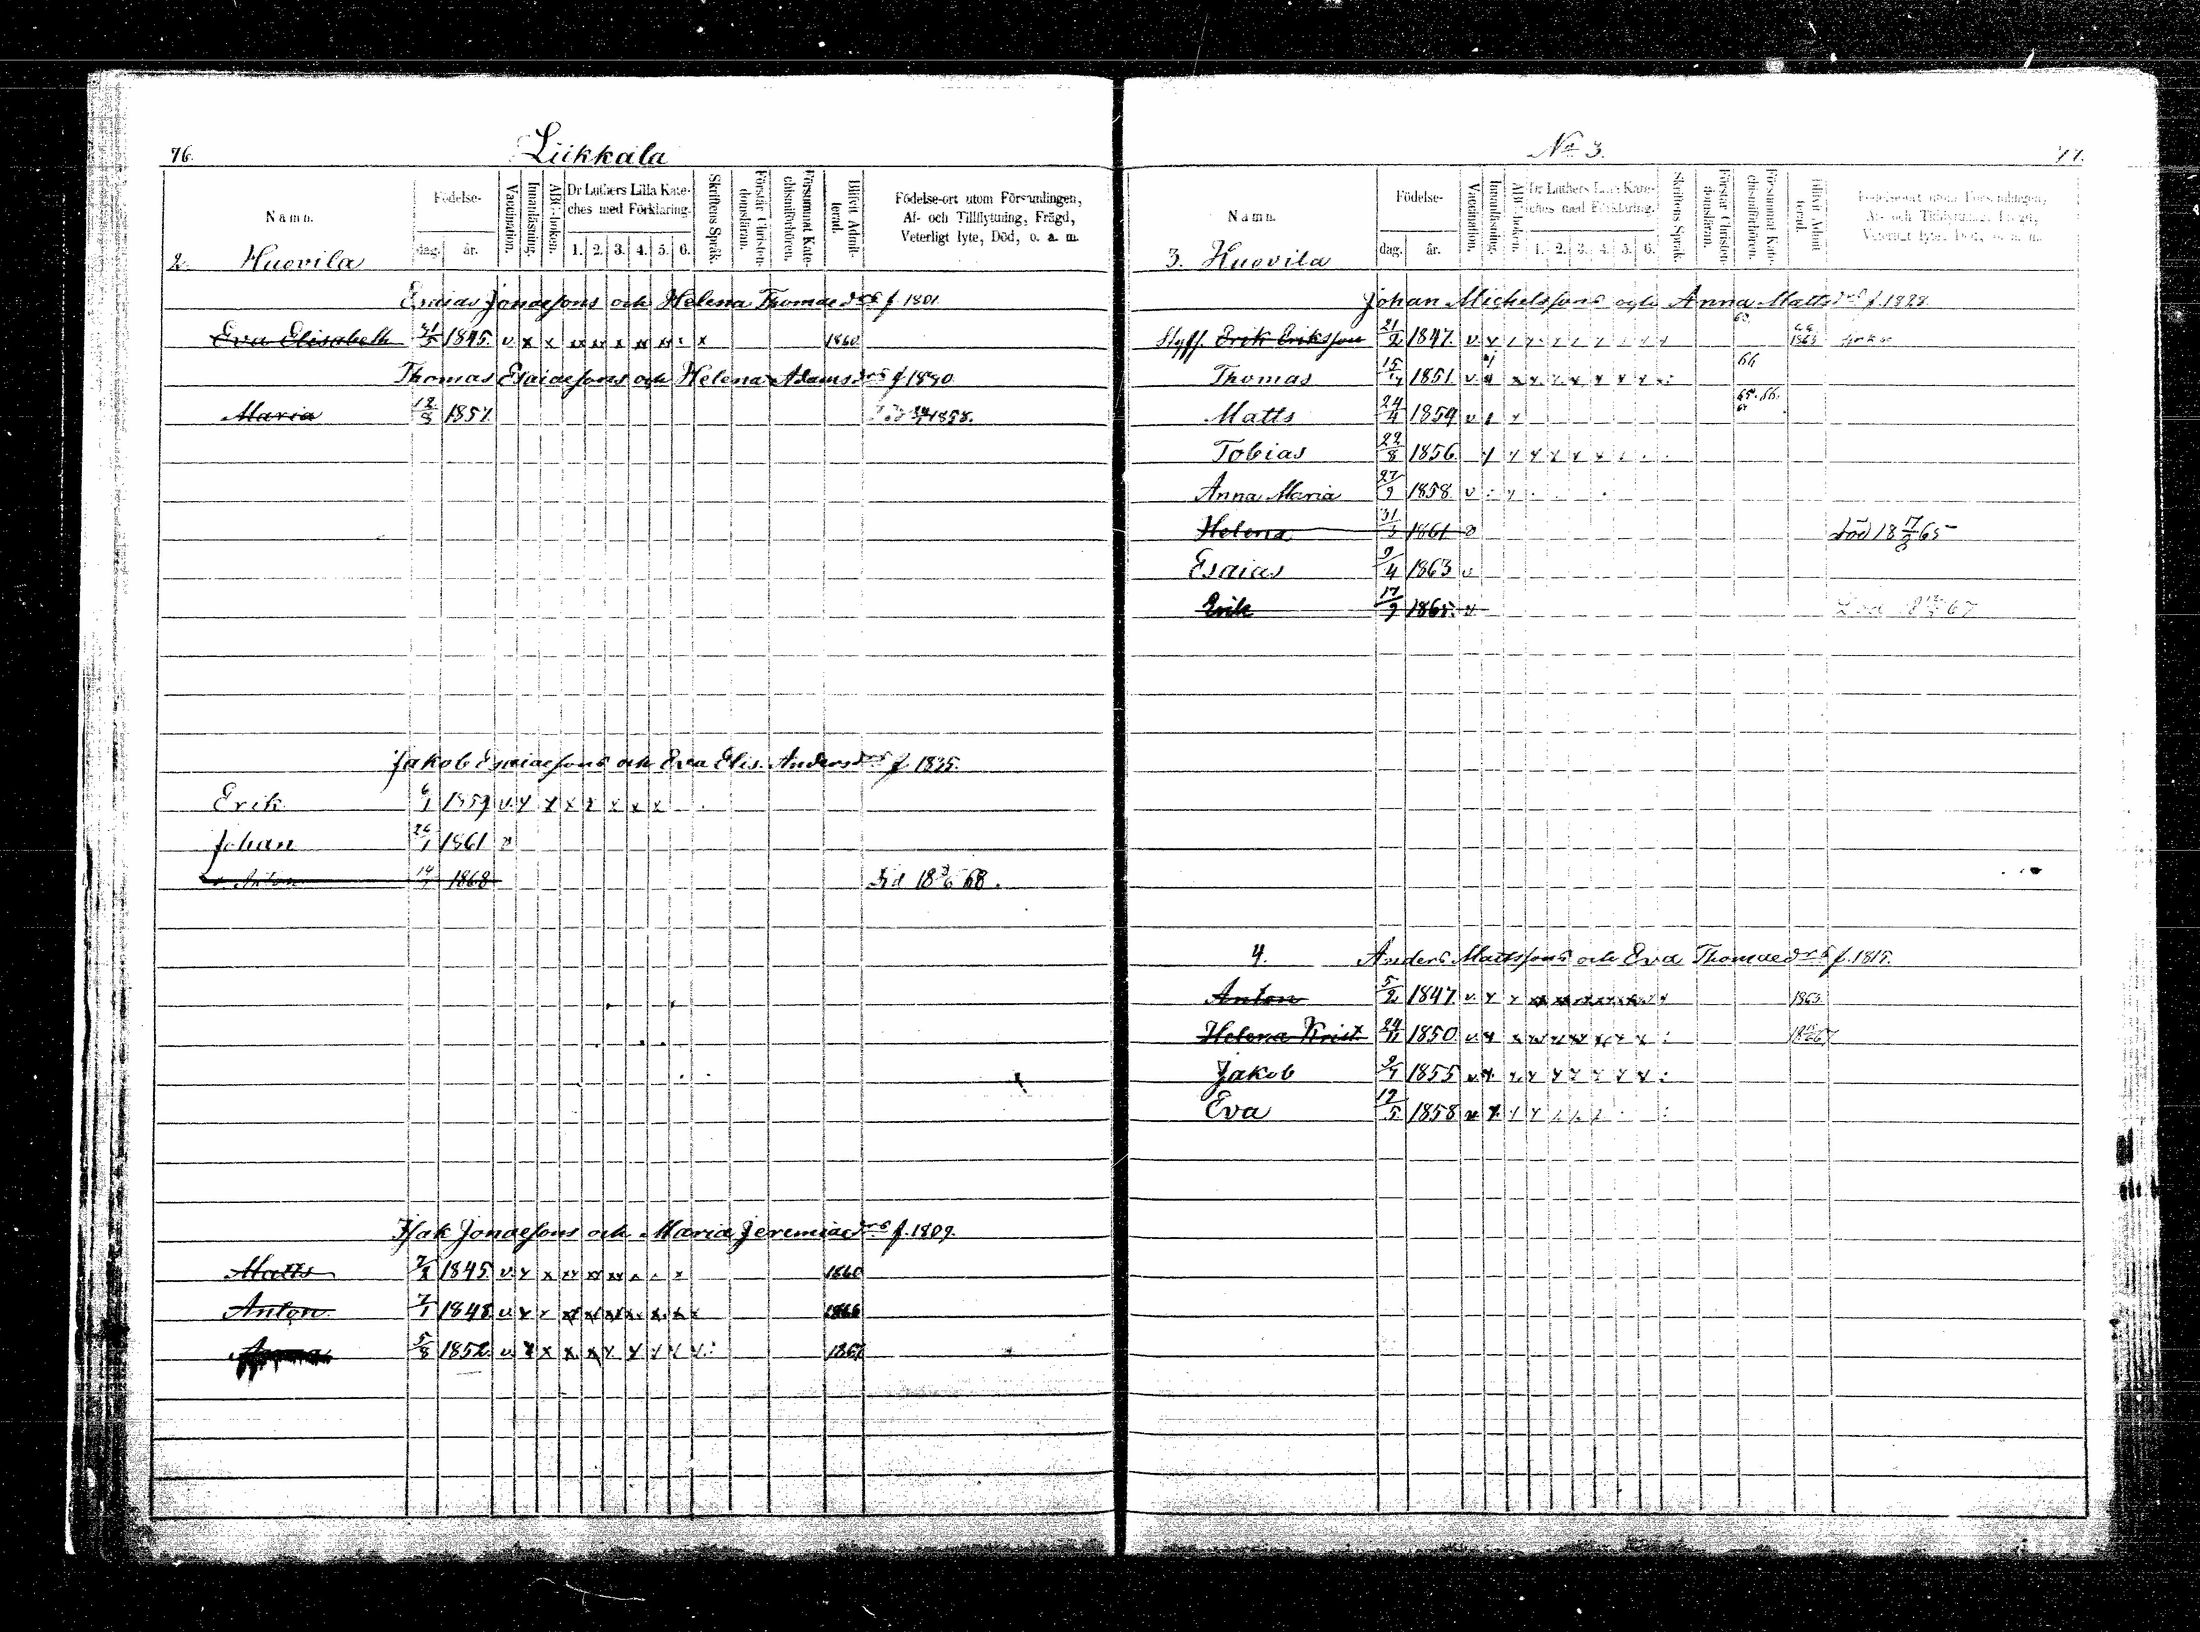 76.
Liikkala
Namn.
Födelse-
dag. år.
Vaccination.
Innanläsning.
ABC-boken.
Dr Luthers Lilla Kate-
ches med Förklaring.
1. 2. 3. 4. 5. 6.
Skriftens Språk.
Förstår Christen-
domsläran.
Försummat Kate-
chismiförhören.
Blifvit Admit-
terad.
Födelse-ort utom Församlingen,
Af- och Tillflyttning, Frägd,
Veterligt lyte, Död, o. a. m.
2. Huovila
Esaias Jonaesons och Helena Thomaedrs f. 1801
Eva Elisabeth 1845. v x x x x x x x x x 1860
Thomas Esaiaesons och Helena Adamsdrs f 1830
Maria 12/3 1857. 1858.
Jakob Esaiaesons och Eva Elis. Andersdrs f 1835.
Erik 6/1 1859 v x x x x x x x
Johan 26/1 1861 v
Anton 14/1 1868 död 18 3/6 68.
Isak Jonaesons och Maria Jeremiaedrs f. 1809.
Matts 1845 v x x xx xx xx x x x 1860
Anton 7/1 1848 v x x x x x x x x x 1866
5/8 1852 v x x x x x x x x x 1867
No 3.
77.
Namn.
Födelse-
dag. år.
Vaccination.
Innanläsning.
ABC-boken.
Dr Luthers Lilla Kate-
ches med Förklaring.
1. 2. 3. 4. 5. 6.
Skriftens Språk.
Förstår Christen-
domsläran.
Försummat Kate-
chismiförhören.
Blifvit Admit-
terad.
Födelse-ort utom Församlingen,
Af- och Tillflyttning, Frägd,
Veterligt lyte, Död, o. a. m.
3. Huovila
Johan Michelssons och Anna Mattsdrs f. 1828
Styff. Erik Eriksson 21/2 1847. v x
Thomas 1851. v x x x x x x x x 66
Matts 24/4 1854 v x x 65. 66.
Tobias 22/8 1856 x x x x x x
Anna Maria 27/9 1858 v
Helena 31/3 1861 v död 18 17/8 65
Esaias 9/4 1863 v
Erik 17/9 1865. v 67
4. Anders Mattssons och Eva Thomaedrs f. 1815.
Anton 5/2 1847 v x x x x x x x x x 1863
Helena Krist. 24/11 1850 v x x x x x x x x
Jakob 1855 v x x x x x x x x
Eva 12/5 1858 v x x x x x x